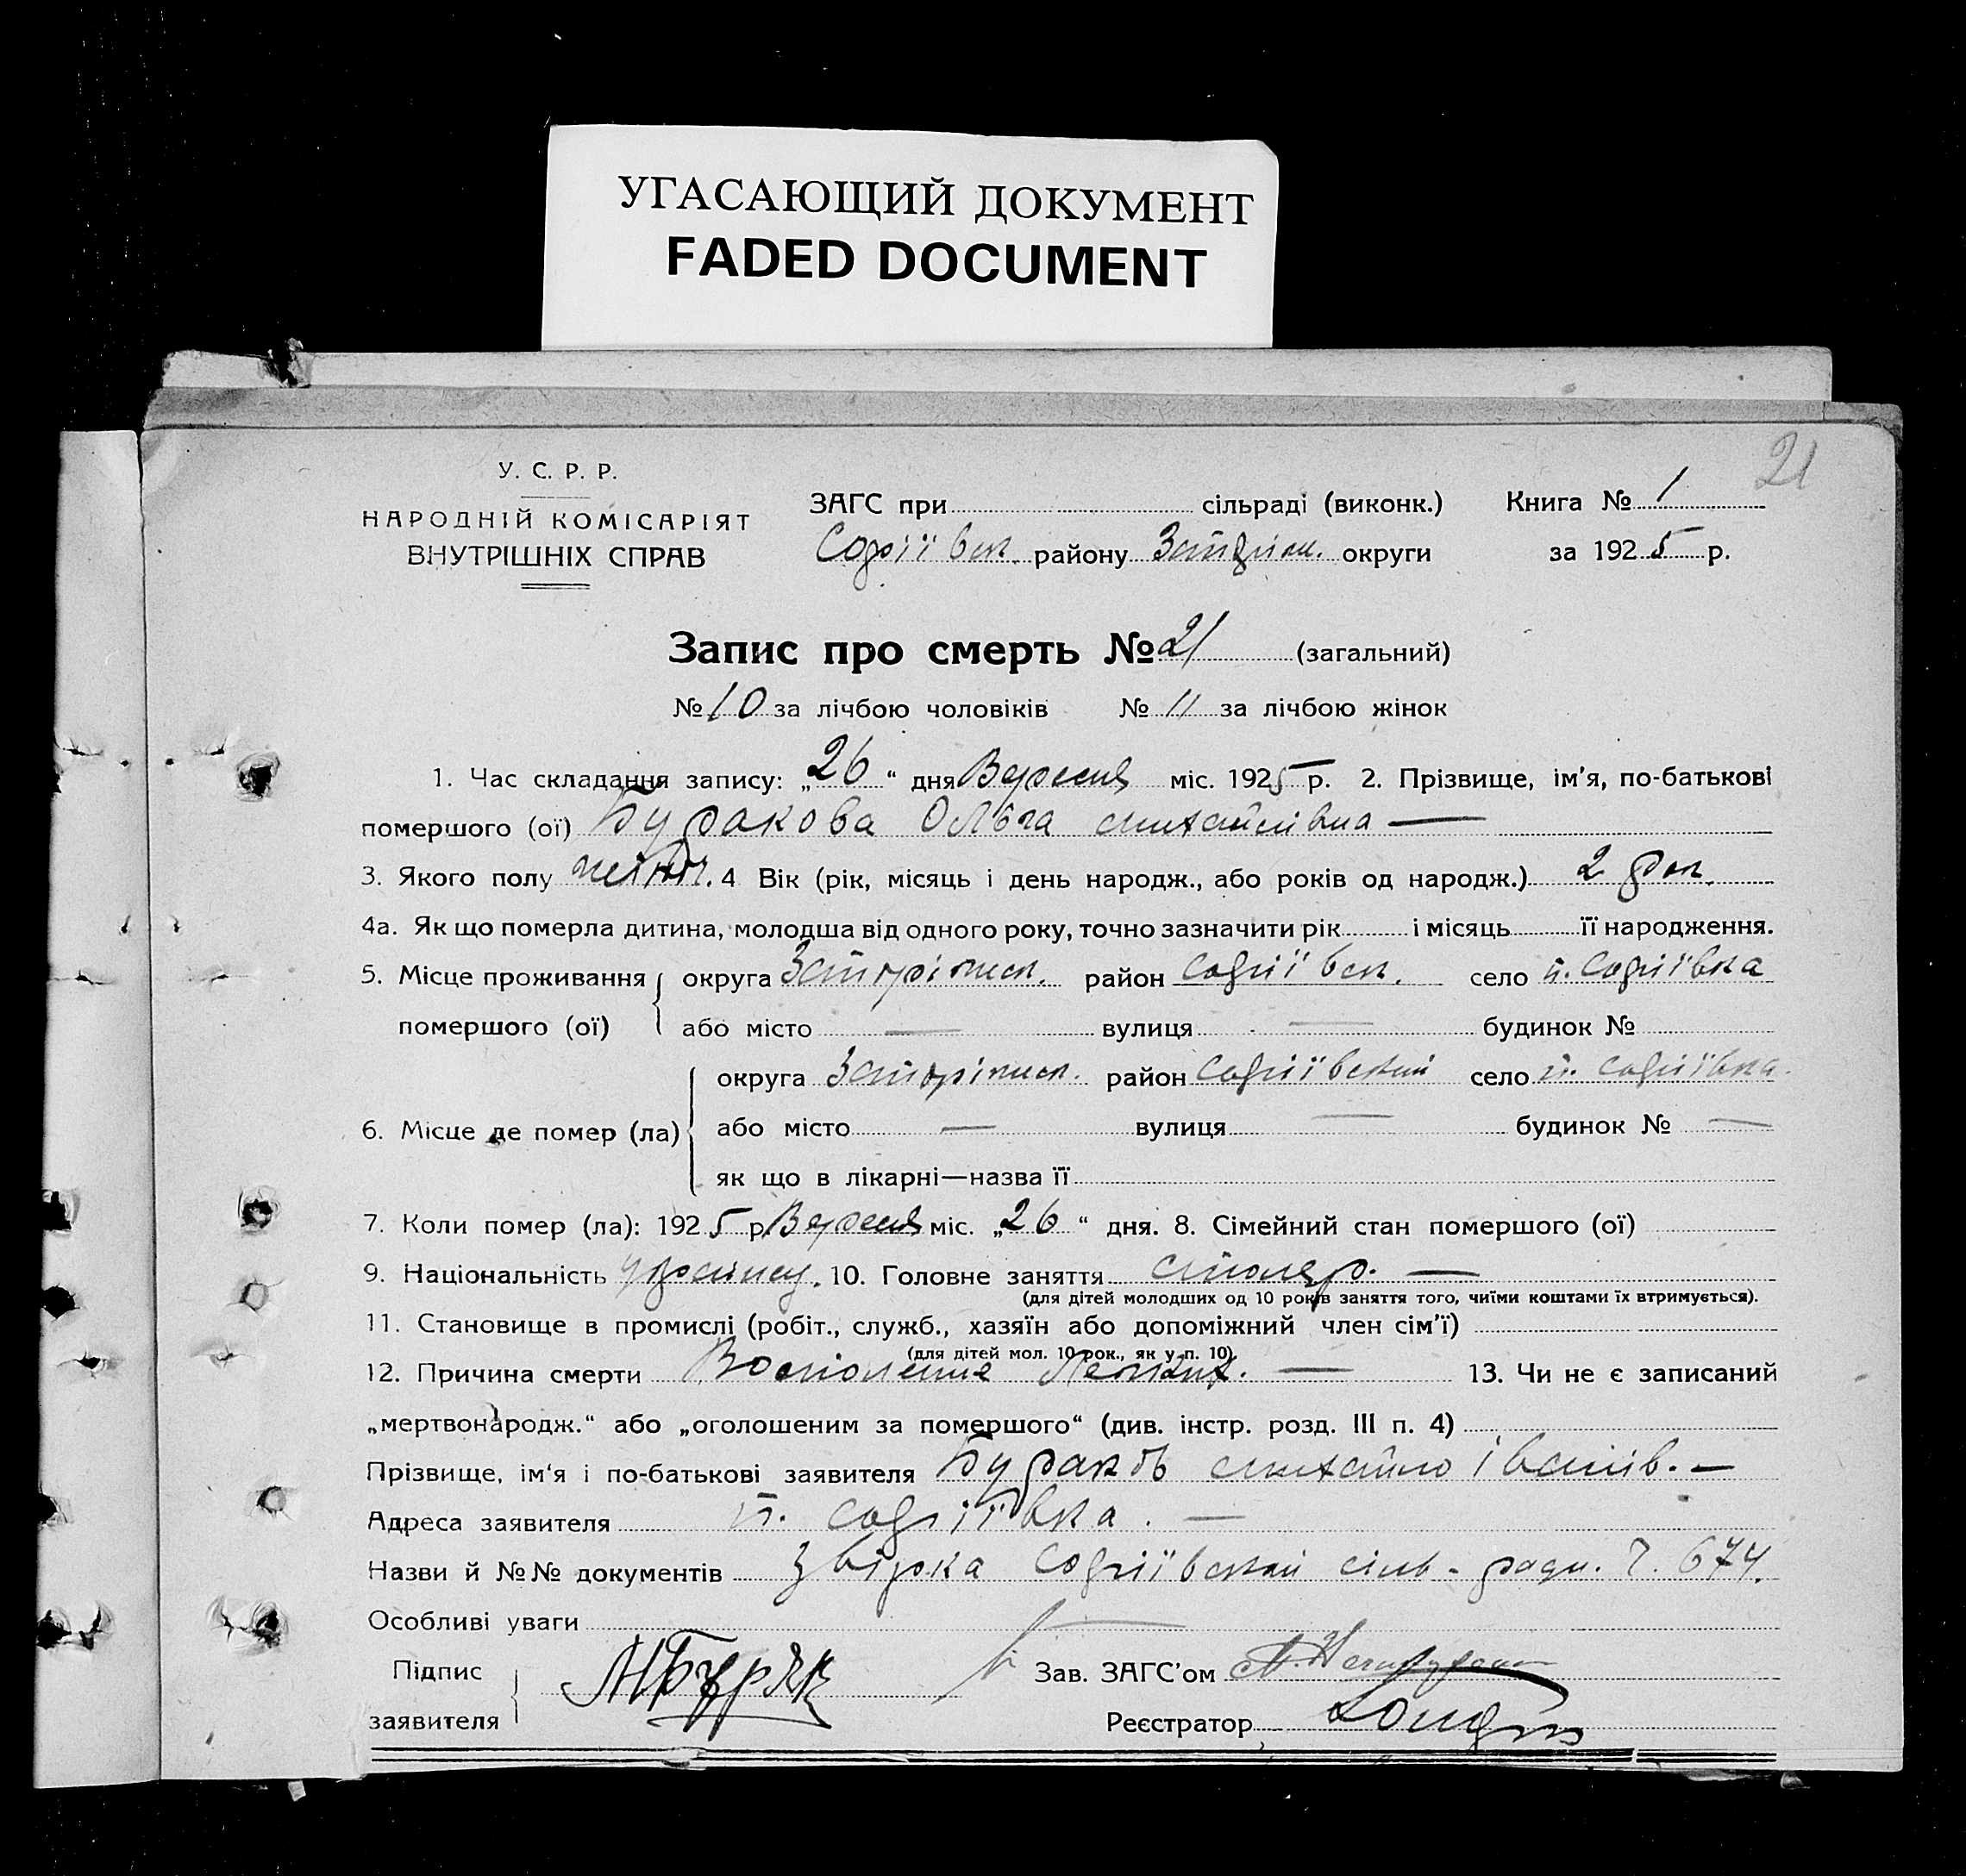 УГАСАЮЩИЙ ДОКУМЕНТ
FADED DOCUMENT
21
У. С. Р. Р.
НАРОДНІЙ КОМІСАРІЯТ
ВНУТРІШНІХ СПРАВ
ЗАГС при сільраді (виконк.) Книга № 1
Софіївськ. району округи за 1925 р.
Запис про смерть № 21 (загальний)
№ 10 за лічбою чоловіків № 11 за лічбою жінок
1. Час складання запису: „26“ дня Вересня міс. 1925 р. 2. Прізвище, ім'я, по-батькові
помершого (ої) Буракова Ольга Михайлівна —
3. Якого полу жіноч. 4 Вік (рік, місяць і день народж., або років од народж.) 2 рок.
4а. Як що померла дитина, молодша від одного року, точно зазначити рік і місяць її народження.
5. Місце проживання округа Запоріжськ. район Софіївськ. село п. Софіївка
помершого (ої) або місто — вулиця — будинок №
округа Запоріжськ. район Софіївський село п. Софіївка.
6. Місце де помер (ла) або місто — вулиця — будинок № —
як що в лікарні—назва її
7. Коли помер (ла): 1925 р. Вересня міс. „26“ дня. 8. Сімейний стан помершого (ої)
9. Національність 10. Головне заняття столяр. —
(для дітей молодших од 10 років заняття того, чиїми коштами їх втримується).
11. Становище в промислі (робіт., служб., хазяїн або допоміжний член сім'ї)
(для дітей мол. 10 рок., як у п. 10).
12. Причина смерти Воспоління Легких. — 13. Чи не є записаний
„мертвонародж.“ або „оголошеним за помершого“ (див. інстр. розд. III п. 4)
Прізвище, ім'я і по-батькові заявителя Бураков Михайло Іванів. —
Адреса заявителя п. Софіївка. —
Назви й №№ документів Звірка Софіївської сіль-ради. Ч. 674.
Особливі уваги
Підпис МБуряк Зав. ЗАГС'ом
заявителя Реєстратор